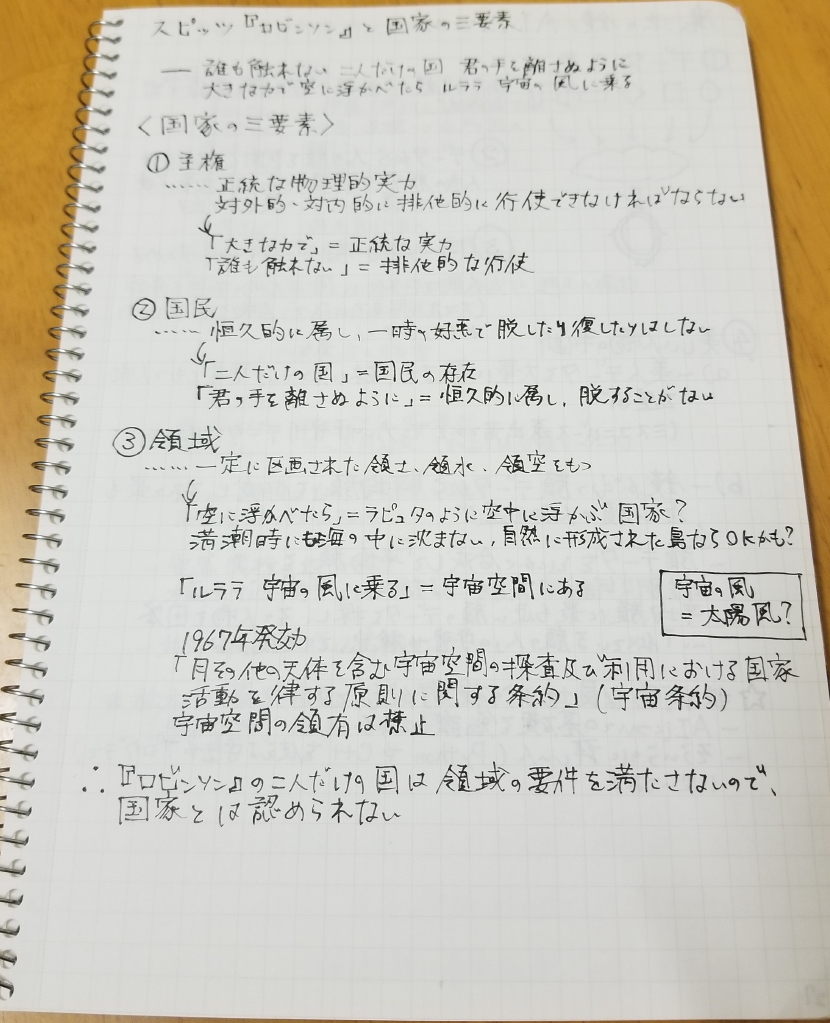 スピッツ『ロビンソン』と国家の三要素
── 誰も触れない 二人だけの国 君の手を離さぬように
大きな力で空に浮かべたら ルララ 宇宙の風に乗る
〈国家の三要素〉
① 主権
…… 正統な物理的実力
対外的・対内的に排他的に行使できなければならない
↓
「大きな力で」＝正統な実力
「誰も触れない」＝排他的な行使
② 国民
…… 恒久的に属し、一時の好悪で脱したり復したりはしない
↓
「二人だけの国」＝国民の存在
「君の手を離さぬように」＝恒久的に属し、脱することがない
③ 領域
…… 一定に区画された領土、領水、領空をもつ
↓
「空に浮かべたら」＝ラピュタのように空中に浮かぶ国家？
満潮時にも海の中に沈まない、自然に形成された島ならOKかも？
「ルララ 宇宙の風に乗る」＝宇宙空間にある
宇宙の風
＝太陽風？
1967年発効
「月その他の天体を含む宇宙空間の探査及び利用における国家
活動を律する原則に関する条約」（宇宙条約）
宇宙空間の領有は禁止
∴『ロビンソン』の二人だけの国は領域の要件を満たさないので、
国家とは認められない